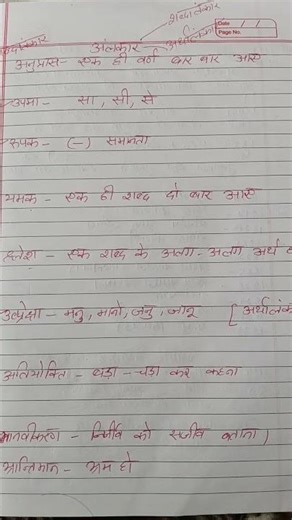 शब्दालंकार
अलंकार
अर्थालं
Date
Page No.
अनुप्रास - एक ही वर्ण बार बार आए
उपमा - सा, सी, से
रुपक - (-) समानता
यमक - एक ही शब्द दो बार आए
श्लेश - एक शब्द के अलग - अलग अर्थ
उत्प्रेक्षा - मनु, मानो, जनु, जानू [अर्थालंका
अतिश्योक्ति - बढ़ा - चढ़ा कर कहना
मानवीकरण - निर्जीव को सजीव बताना)
भ्रान्तिमान - भ्रम हो